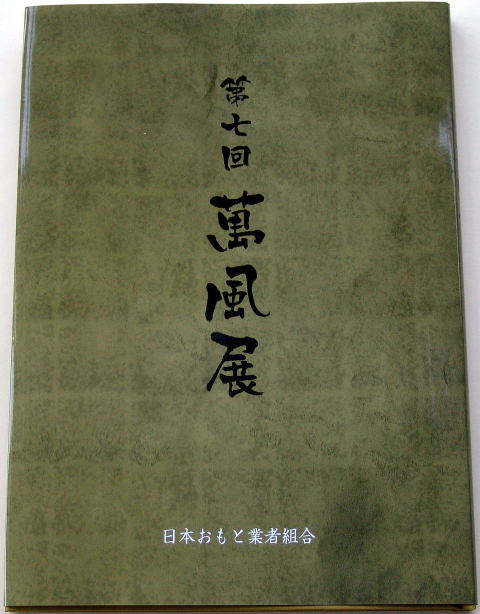 第七回 萬風展
日本おもと業者組合